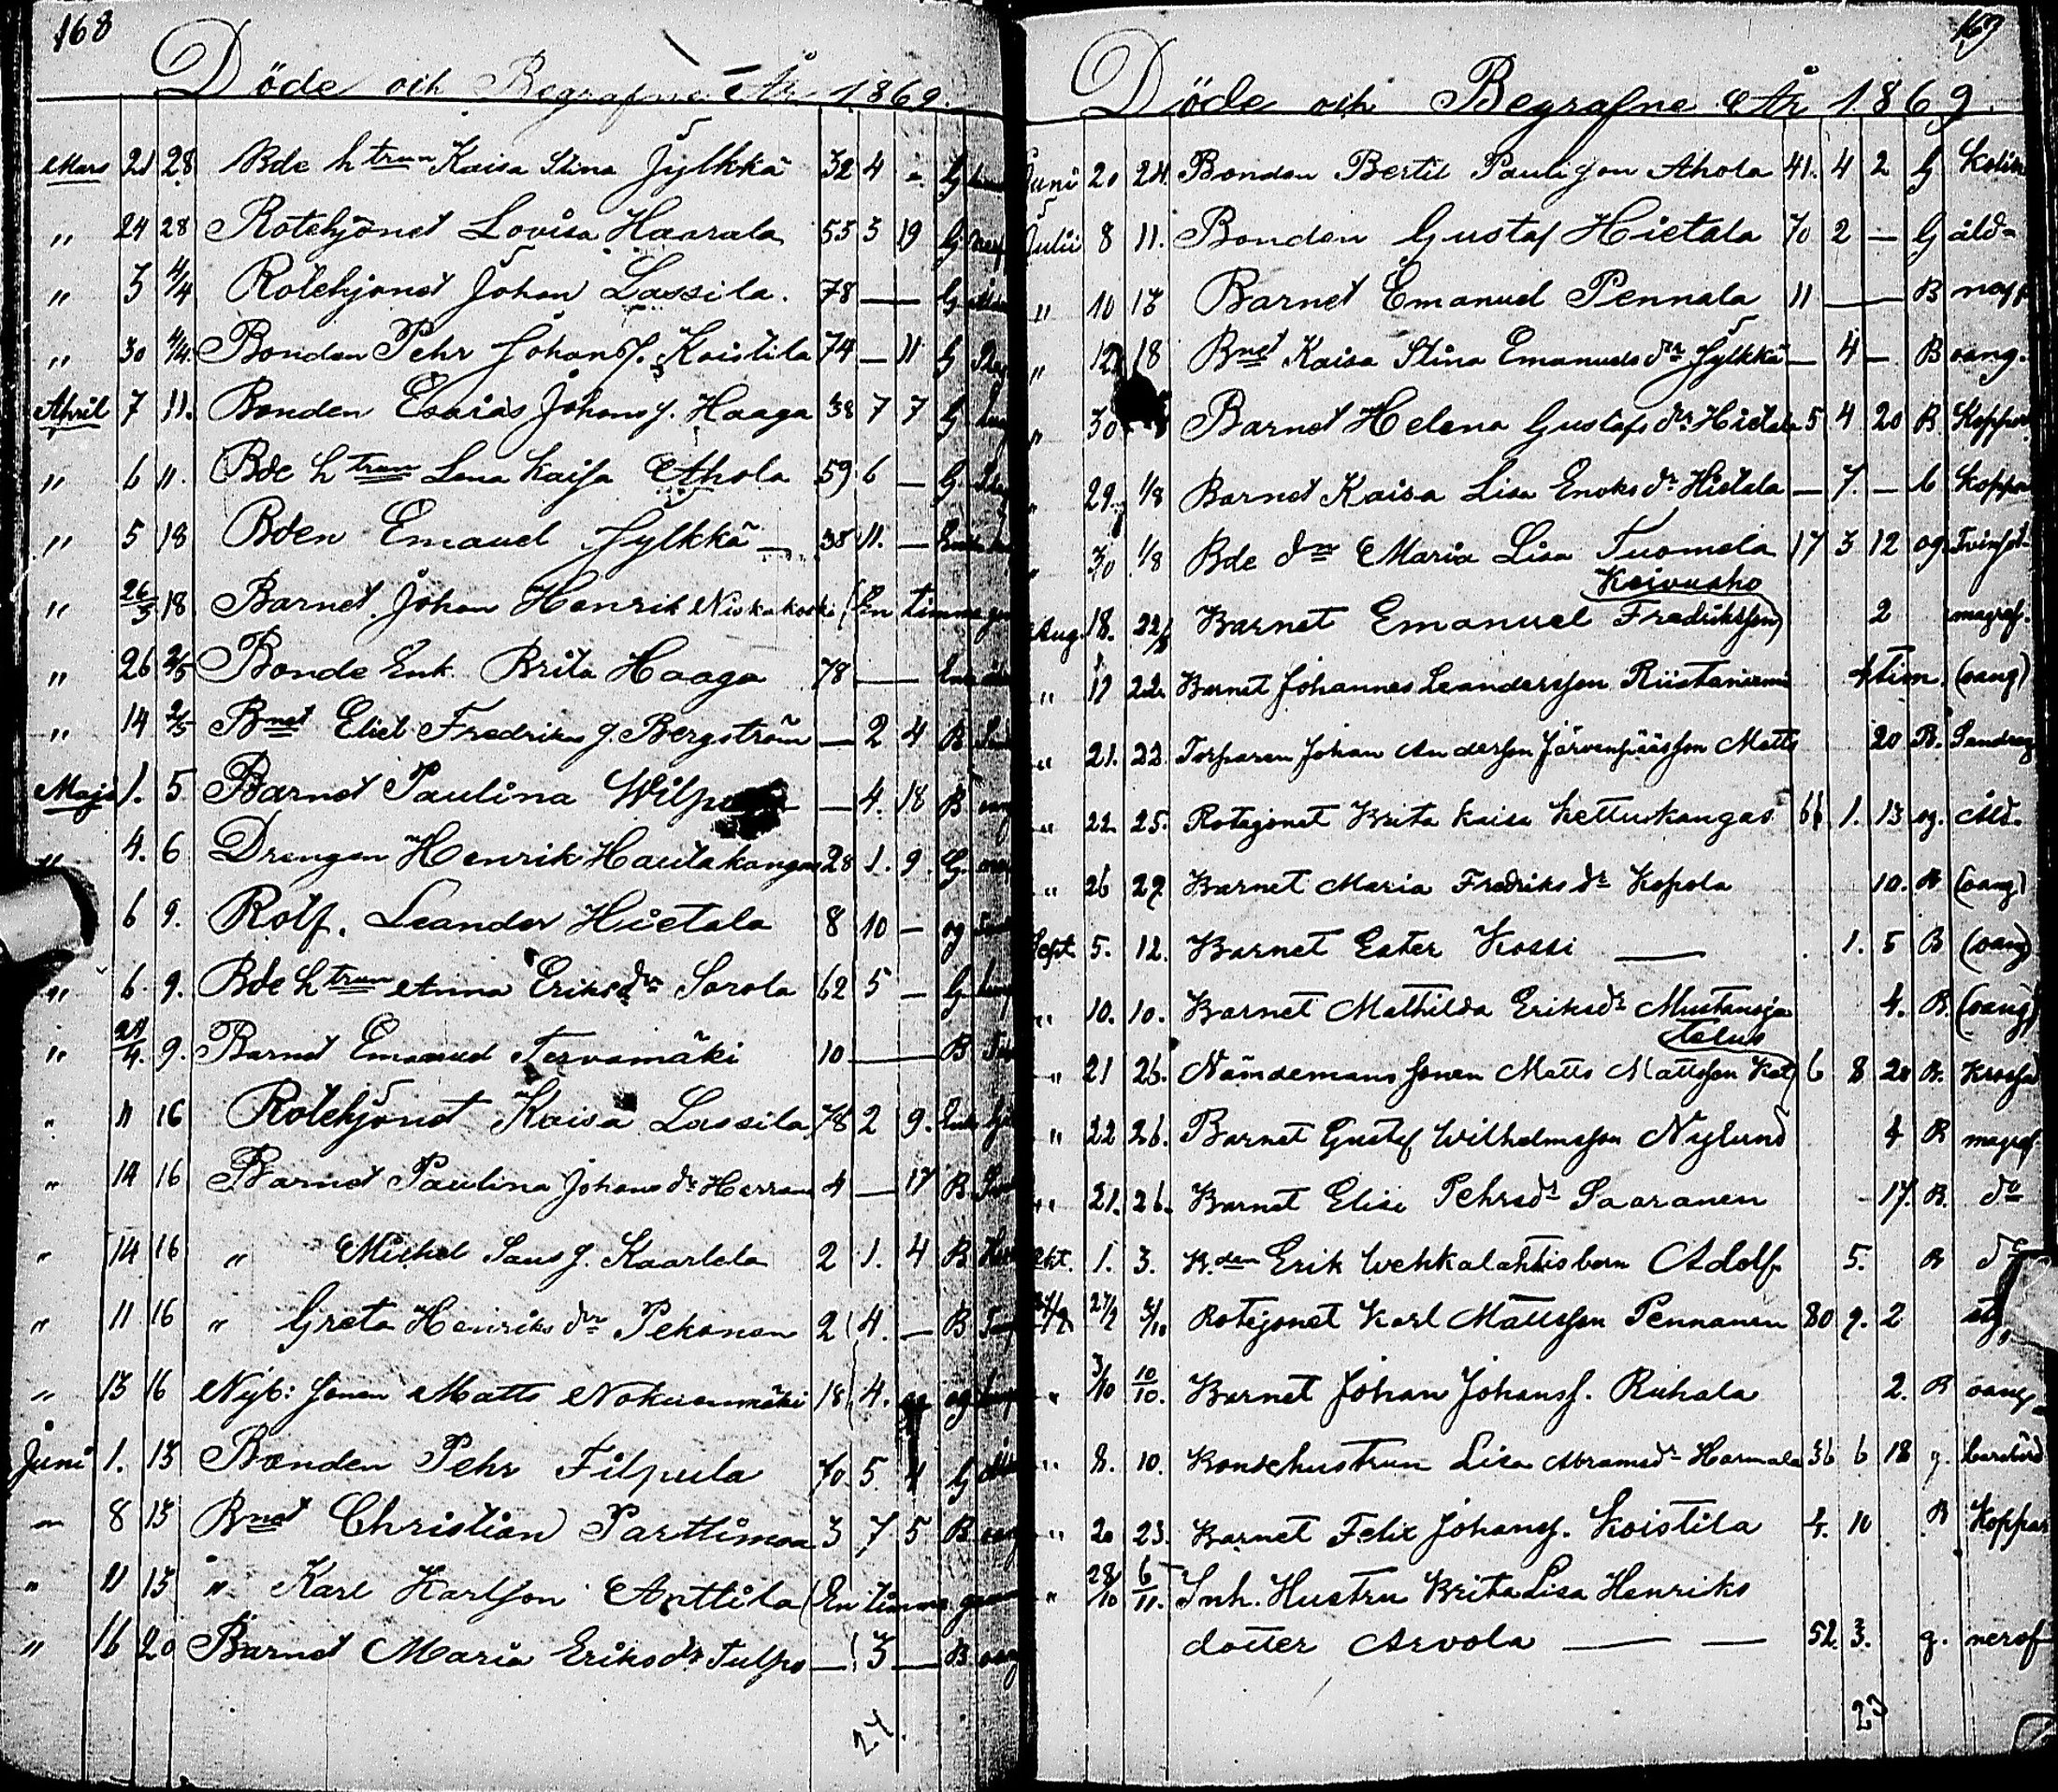 168
Döde och Begrafne År 1869.
Mars 21 28 Bde htrun Kaisa Stina Jylkkä 32 4 - G
" 24 28 Rotehjonet Lovisa Haarala 55 3 19 G
" 3 4/4 Rotehjonet Johan Lassila. 78 — G
" 30 4/4 Bonden Pehr Johans f. Koistila 74 — 11 G
April 7 11. Bonden Esaias Johans f. Haaga 38 7 7 G
" 6 11. Bde htrun Lena Kaisa Ahola 59 6 — G
" 5 18 Bden Emauel Jylkkä — 38 11. —
" 26/3 18 Barnet Johan Henrik Niskakoski (En timme
" 26 2/5 Bonde Enk. Brita Haaga 78 —
" 14 2/5 Bnet Eliel Fredriks f. Bergström — 2 4 B
Maji 1. 5 Barnet Paulina — 4. 18 B
" 4. 6 Drengen Henrik Hautakangas 28 1. 9. G.
6 9. Rotf. Leander Hietala 8 10 — og
" 6. 9. Bde htrun Anna Eriksdr Sorola 62 5 — G
" 24/4. 9. Barnet Emanuel Tervamäki 10 — B
" 11 16 Rotehjonet Kaisa Lassila 78 2 9.
" 14 16 Barnet Paulina Johans dr Herran 4 — 17 B
" 14 16 " Michel Sans f. Kaarlela 2 1. 4 B
" 11 16 " Greta Henriks dr Pekonen 2 4. — B
" 13 16 Nyb: sonen Matts Nokuanmäki 18 4. og
Juni 1. 13 Bonden Pehr Filpula 70. 5. 4 G
" 8 13 Bnet Christian Parttimaa 3 7 5 B
" 11 13 " Karl Karlson Anttila (En timme
" 16 20 Barnet Maria Eriksdr Tulpo — 3 — B
24.
169
Döde och Begrafne År 1869.
Juni 20 24. Bonden Bertil Pauli son Ahola 41. 4 2 G
Julii 8 11. Bonden Gustaf Hietala 70 2 — G åld-
" 10 13 Barnet Emanuel Pennala 11 — B
" 12 18 Bnet Kaisa Stina Emanuels dra Jylkkä — 4 — B oang.
" 30 Barnet Helena Gustafs dr Hietala 5 4 20 B. Koppor
" 29. 1/8 Barnet Kaisa Lisa Enoks dr Hietala — 7. — b Koppor
" 30 1/8 Bde dra Maria Lisa Tuomela 17 3 12 og
Keivusho
Aug. 18. 22/8 Barnet Emanuel Fredriksson) 2 magref.
" 17 22. Barnet Johannes Leandersson Riistaniemi 4 tim. (oang)
" 21. 22. Torparen Johan Andersson Järvenpääs son Matts 20 B.
" 22. 25. Rotejonet Brita Kaisa Kettukangas 66 1. 13 og. åld.
" 26 29 Barnet Maria Fredriks dr Kopola 10. B (oang)
Sept. 5. 12. Barnet Ester Koski — 1. 5 B (oang)
" 10. 10. Barnet Mathilda Eriksdr Mustansja 4. B. (oang)
talus
" 21 26. Nämdemans sonen Matts Mattsson Kat) 6 8 20 B.
" 22 26. Barnet Gustaf Wilhelmsson Nylund 4 B magref
" 21. 26. Barnet Elise Pehrsdr Saaranen - 17. B. do
Okt. 1. 3. B.den Erik Wehkalahtis barn Adolf 5. B do
27/9 3/10 Rotejonet Karl Mattsson Pennanen 80 9. 2
" 3/10 10/10. Barnet Johan Johans f. Ruhala 2. B oang
" 8. 10. Bondehustrun Lisa Abramsdr Harmala 36 6 18 g. barsbörd
" 20 23. Barnet Felix Johans f. Koistila 10 B Koppor
" 28/10 6/11. Inh. Hustru Brita Lisa Henriks
dotter Arvola — — 52. 3. g. nerof
23